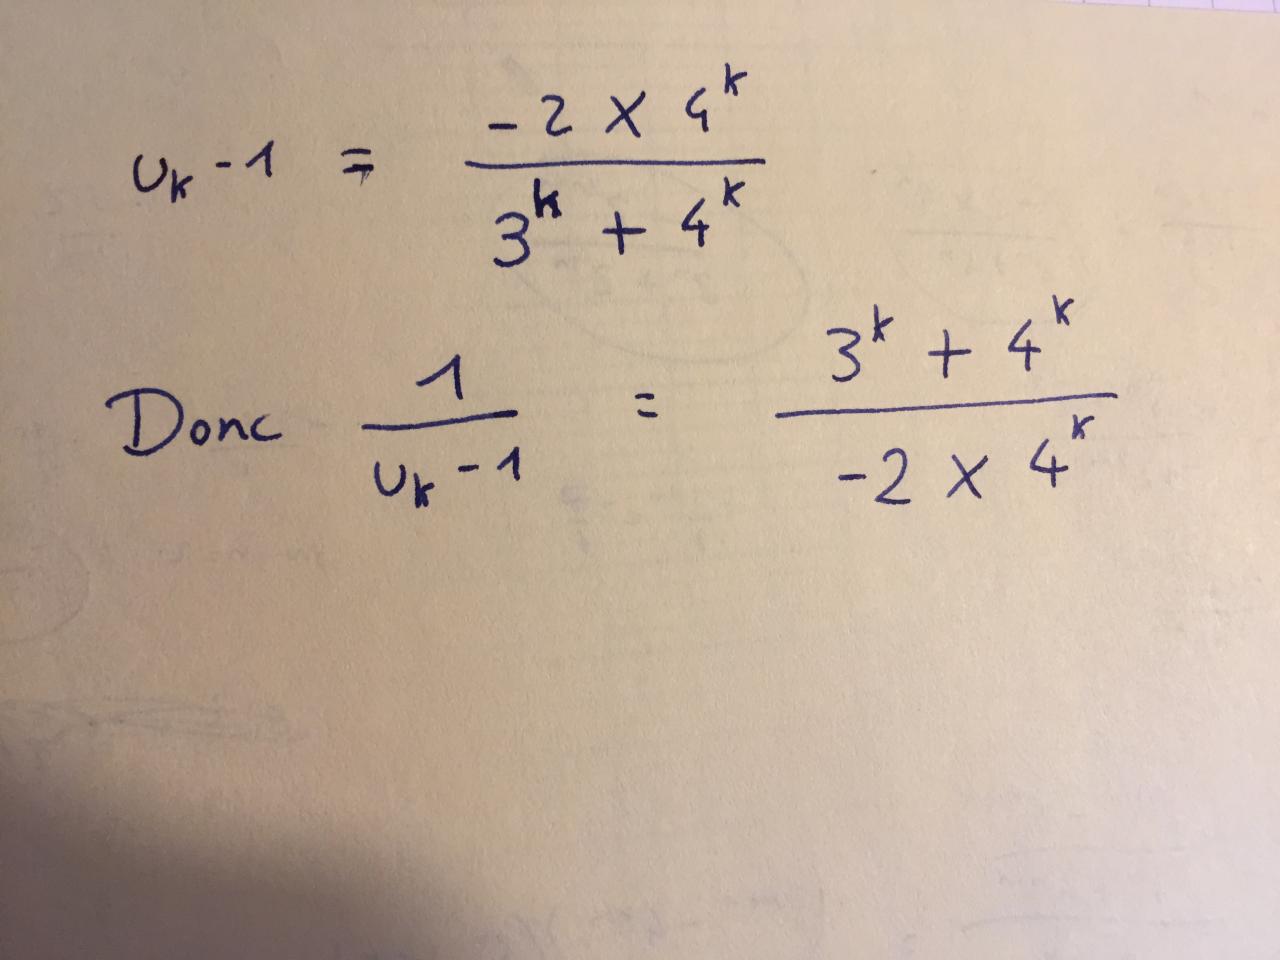 u_k - 1 = \frac{-2 × 4^k}{3^k + 4^k}
Donc \frac{1}{u_k - 1} = \frac{3^k + 4^k}{-2 × 4^k}